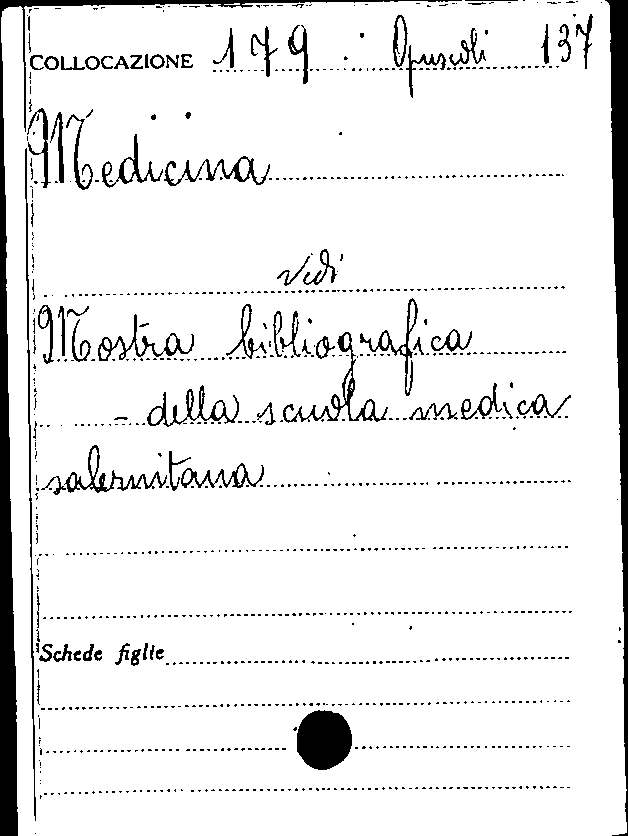 COLLOCAZIONE 179 . Opuscoli 137
Medicina
vedi
Mostra bibliografica
- della scuola medica
salernitana
Schede figlie